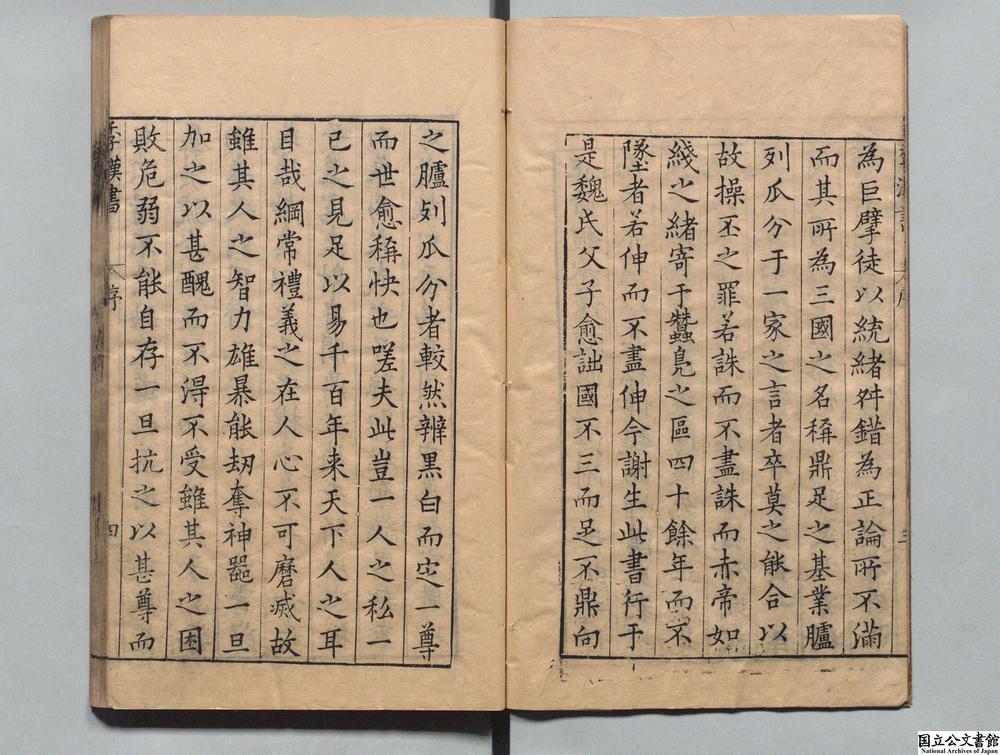 為巨擘徒以統緒舛錯為正論所不滿
而其所為三國之名稱鼎足之基業臚
列瓜分于一家之言者卒莫之能合以
故操丕之罪若誅而不盡誅而赤帝如
綫之緒寄于蠶鳧之區四十餘年而不
墜者若伸而不盡伸今謝生此書行于
是魏氏父子愈詘國不三而足不鼎向
之臚列瓜分者較然辨黑白而定一尊
而世愈稱快也嗟夫此豈一人之私一
已之見足以易千百年来天下人之耳
目哉綱常禮義之在人心不可磨滅故
雖其人之智力雄暴能劫奪神噐一旦
加之以甚醜而不得不受雖其人之困
敗危弱不能自存一旦抗之以甚尊而
季漢書 序 四
国立公文書館
National Archives of Japan